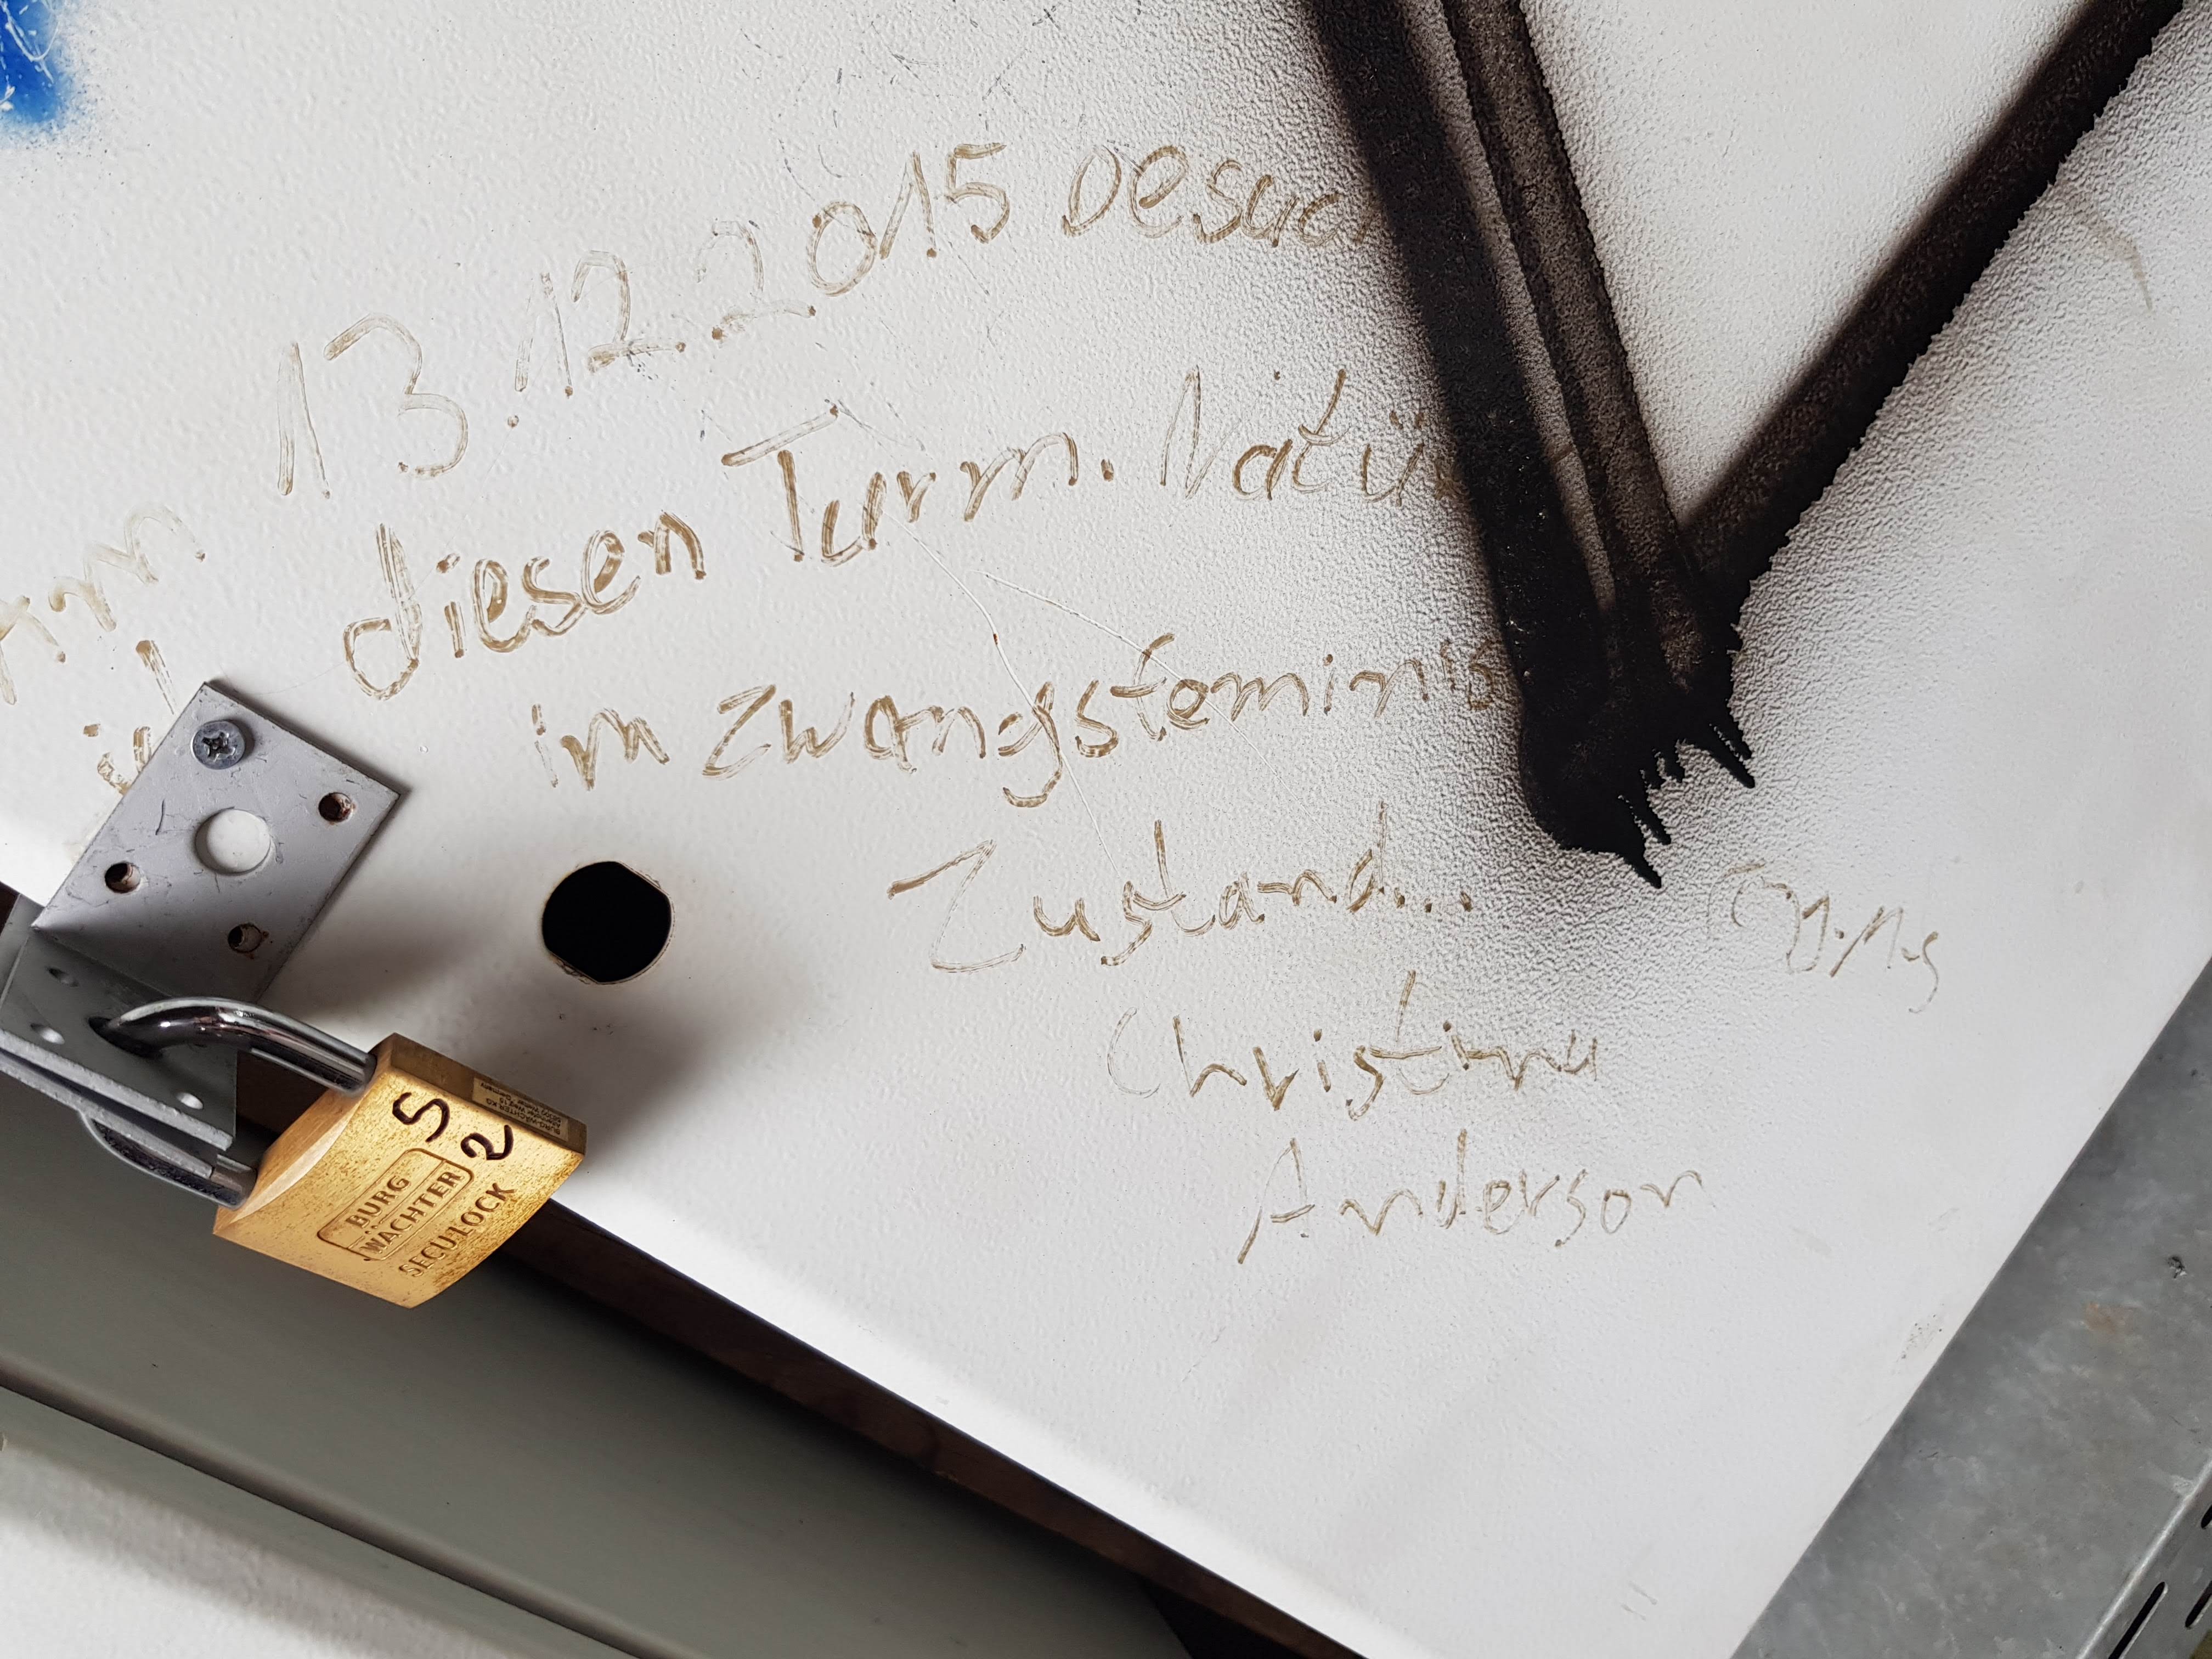 Am 13.12.2015 besuch
diesen Turm. Natür
im zwangsfeminis
Zustand...
Christina
Anderson
S 2
BURG
WÄCHTER
SECU LOCK